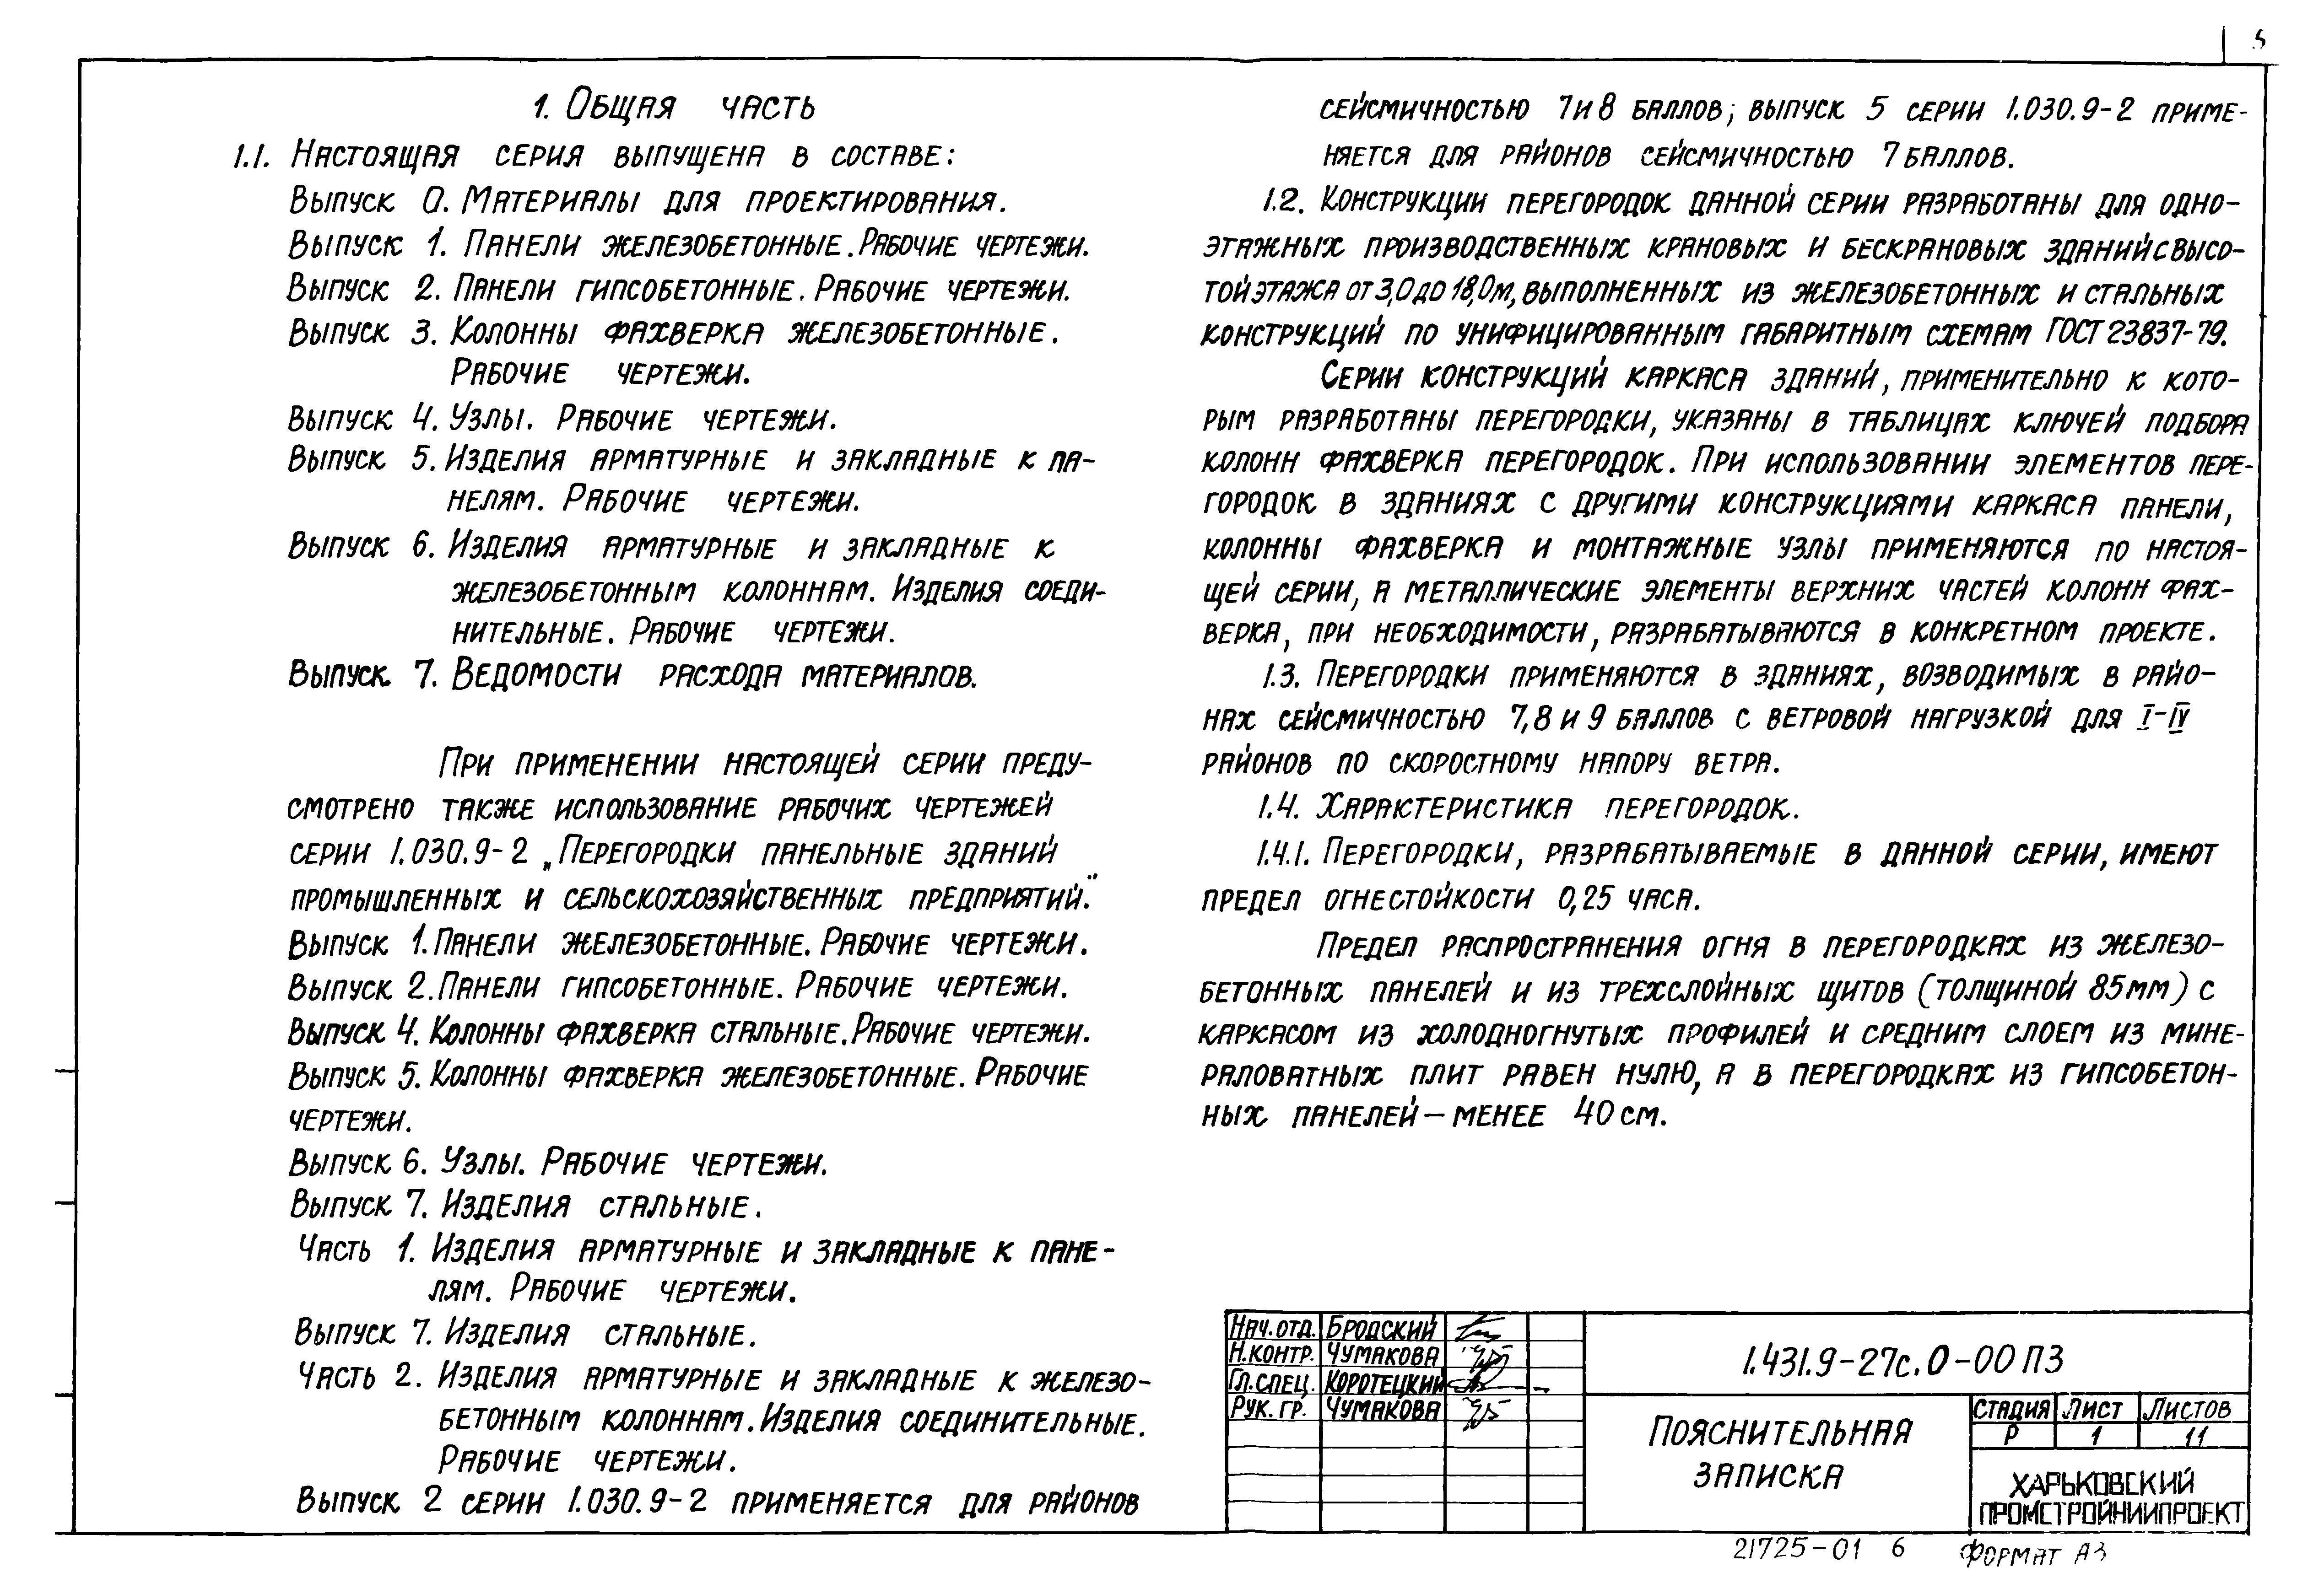 5
1. Общая часть
1.1. Настоящая серия выпущена в составе:
Выпуск 0. Материалы для проектирования.
Выпуск 1. Панели железобетонные. Рабочие чертежи.
Выпуск 2. Панели гипсобетонные. Рабочие чертежи.
Выпуск 3. Колонны фахверка железобетонные.
Рабочие чертежи.
Выпуск 4. Узлы. Рабочие чертежи.
Выпуск 5. Изделия арматурные и закладные к па-
нелям. Рабочие чертежи.
Выпуск 6. Изделия арматурные и закладные к
железобетонным колоннам. Изделия соеди-
нительные. Рабочие чертежи.
Выпуск 7. Ведомости расхода материалов.
При применении настоящей серии преду-
смотрено также использование рабочих чертежей
серии 1.030.9-2 „Перегородки панельные зданий
промышленных и сельскохозяйственных предприятий."
Выпуск 1. Панели железобетонные. Рабочие чертежи.
Выпуск 2. Панели гипсобетонные. Рабочие чертежи.
Выпуск 4. Колонны фахверка стальные. Рабочие чертежи.
Выпуск 5. Колонны фахверка железобетонные. Рабочие
чертежи.
Выпуск 6. Узлы. Рабочие чертежи.
Выпуск 7. Изделия стальные.
Часть 1. Изделия арматурные и закладные к пане-
лям. Рабочие чертежи.
Выпуск 7. Изделия стальные.
Часть 2. Изделия арматурные и закладные к железо-
бетонным колоннам. Изделия соединительные.
Рабочие чертежи.
Выпуск 2 серии 1.030.9-2 применяется для районов
сейсмичностью 7 и 8 баллов; выпуск 5 серии 1.030.9-2 приме-
няется для районов сейсмичностью 7 баллов.
1.2. Конструкции перегородок данной серии разработаны для одно-
этажных производственных крановых и бескрановых зданий с высо-
той этажа от 3,0 до 18,0м, выполненных из железобетонных и стальных
конструкций по унифицированным габаритным схемам ГОСТ 23837-79.
Серии конструкций каркаса зданий, применительно к кото-
рым разработаны перегородки, указаны в таблицах ключей подбора
колонн фахверка перегородок. При использовании элементов пере-
городок в зданиях с другими конструкциями каркаса панели,
колонны фахверка и монтажные узлы применяются по настоя-
щей серии, а металлические элементы верхних частей колонн фах-
верка, при необходимости, разрабатываются в конкретном проекте.
1.3. Перегородки применяются в зданиях, возводимых в райо-
нах сейсмичностью 7, 8 и 9 баллов с ветровой нагрузкой для I-IV
районов по скоростному напору ветра.
1.4. Характеристика перегородок.
1.4.1. Перегородки, разрабатываемые в данной серии, имеют
предел огнестойкости 0,25 часа.
Предел распространения огня в перегородках из железо-
бетонных панелей и из трехслойных щитов (толщиной 85мм) с
каркасом из холодногнутых профилей и средним слоем из мине-
раловатных плит равен нулю, а в перегородках из гипсобетон-
ных панелей – менее 40 см.
Нач. отд. Бродский
Н. контр. Чумакова
Гл. спец. Коротецкий
Рук. гр. Чумакова
1.431.9-27с.0-00 ПЗ
Пояснительная
записка
Стадия Лист Листов
Р 1 11
Харьковский
Промстройниипроект
21725-01 6 Формат А3